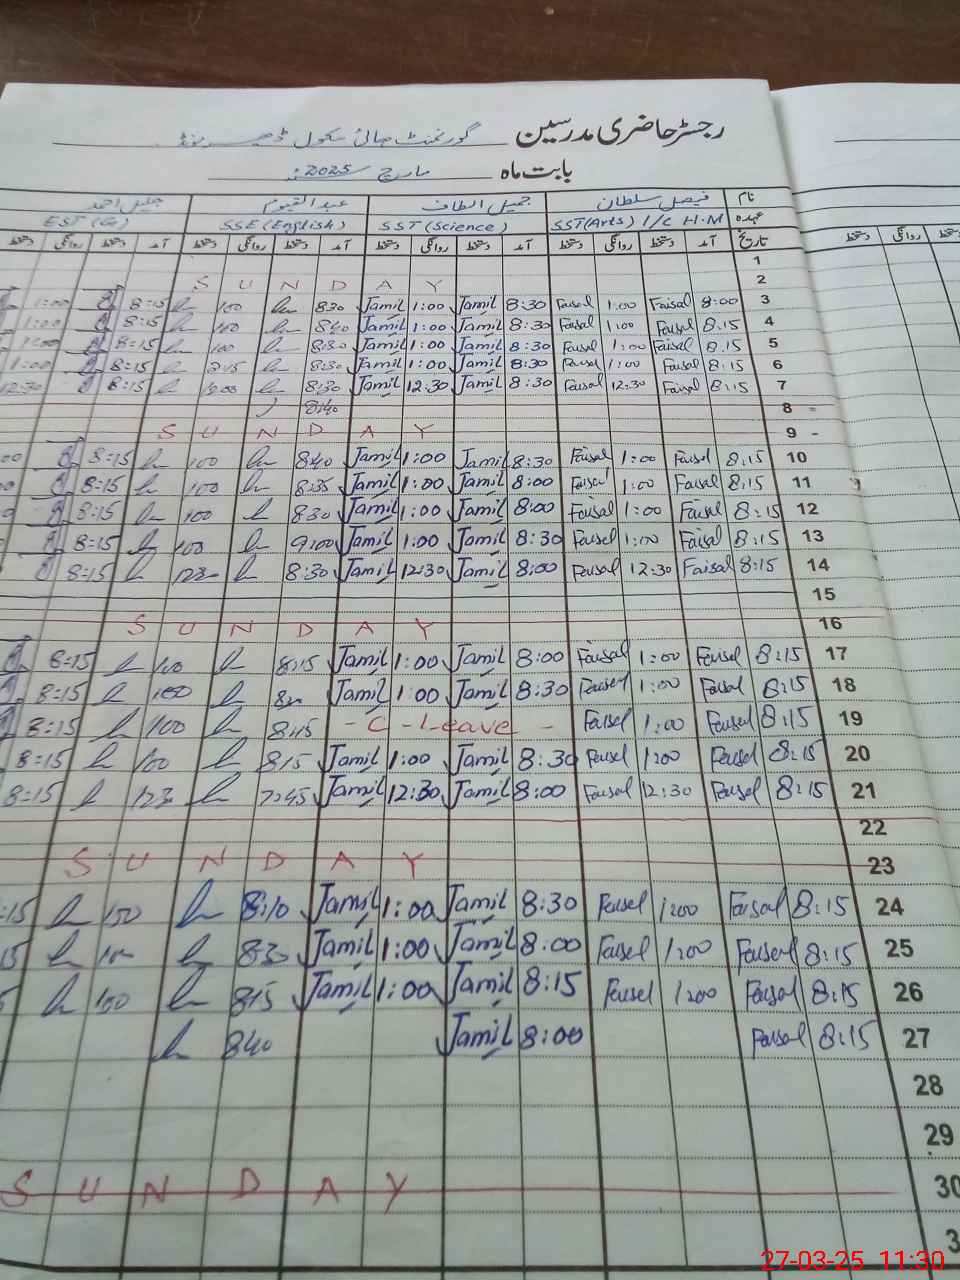 رجسٹر حاضری مدرسین گورنمنٹ ہائی سکول
بابت ماہ مارچ 2025ء
نام فیصل سلطان جمیل الطاف عبدالقیوم جلیل احمد
عہدہ SST(Arts) I/c H.M SST(Science) SSE(English) EST(G)
تاریخ آمد دستخط روانگی دستخط آمد دستخط روانگی دستخط آمد دستخط روانگی دستخط آمد دستخط روانگی دستخط
1
S U N D A Y 2
1:00 8:15 100 830 Jamil 1:00 Jamil 8:30 Faisal 1:00 Faisal 8:00 3
1:00 8:15 100 840 Jamil 1:00 Jamil 8:30 Faisal 1:00 Faisal 8:15 4
1:00 8:15 100 8:30 Jamil 1:00 Jamil 8:30 Faisal 1:00 Faisal 8:15 5
1:00 8:15 8:30 Jamil 1:00 Jamil 8:30 Faisal 1:00 Faisal 8:15 6
12:30 8:15 8:30 Jamil 12:30 Jamil 8:30 Faisal 12:30 Faisal 8:15 7
8:40 8 -
S U N D A Y 9 -
00 8:15 100 840 Jamil 1:00 Jamil 8:30 Faisal 1:00 Faisal 8:15 10
8:15 100 8:35 Jamil 1:00 Jamil 8:00 Faisal 1:00 Faisal 8:15 11
8:15 100 830 Jamil 1:00 Jamil 8:00 Faisal 1:00 Faisal 8:15 12
8:15 100 9:00 Jamil 1:00 Jamil 8:30 Faisal 1:00 Faisal 8:15 13
8:15 1230 8:30 Jamil 12:30 Jamil 8:00 Faisal 12:30 Faisal 8:15 14
15
S U N D A Y 16
8:15 100 8:15 Jamil 1:00 Jamil 8:00 Faisal 1:00 Faisal 8:15 17
8:15 100 Jamil 1:00 Jamil 8:30 Faisal 1:00 Faisal 8:15 18
8:15 100 845 - C - Leave - Faisal 1:00 Faisal 8:15 19
8:15 100 815 Jamil 1:00 Jamil 8:30 Faisal 1:00 Faisal 8:15 20
8:15 1230 7:45 Jamil 12:30 Jamil 8:00 Faisal 12:30 Faisal 8:15 21
22
S U N D A Y 23
:15 100 8:10 Jamil 1:00 Jamil 8:30 Faisal 1:00 Faisal 8:15 24
15 100 830 Jamil 1:00 Jamil 8:00 Faisal 1:00 Faisal 8:15 25
100 815 Jamil 1:00 Jamil 8:15 Faisal 1:00 Faisal 8:15 26
840 Jamil 8:00 Faisal 8:15 27
28
29
S U N D A Y 30
3
27-03-25 11:30